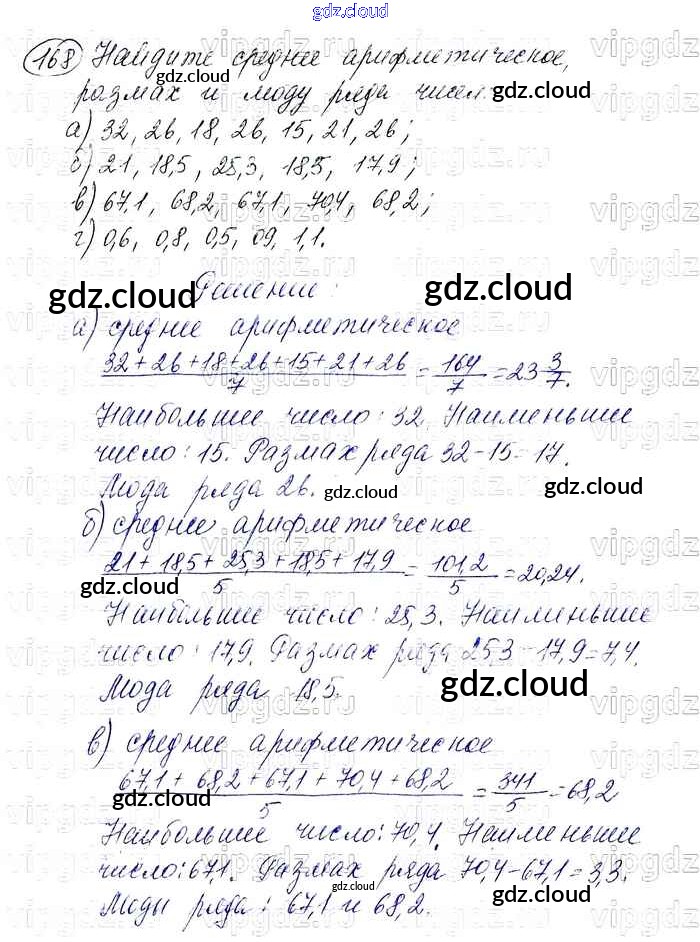 gdz.cloud
168 Найдите среднее арифметическое,
размах и моду ряда чисел:
а) 32, 26, 18, 26, 15, 21, 26;
б) 21, 18,5, 25,3, 18,5, 17,9;
в) 67,1, 68,2, 67,1, 70,4, 68,2;
г) 0,6, 0,8, 0,5, 09, 1,1.
Решение:
а) среднее арифметическое
32+26+18+26+15+21+26/7 = 164/7 = 23 3/7.
Наибольшее число: 32. Наименьшее
число: 15. Размах ряда 32-15=17.
Мода ряда 26.
б) среднее арифметическое
21+18,5+25,3+18,5+17,9/5 = 101,2/5 = 20,24.
Наибольшее число: 25,3. Наименьшее
число: 17,9. Размах ряда 25,3-17,9=7,4.
Мода ряда 18,5.
в) среднее арифметическое
67,1+68,2+67,1+70,4+68,2/5 = 341/5 = 68,2
Наибольшее число: 70,4. Наименьшее
число: 67,1. Размах ряда 70,4-67,1=3,3.
Моды ряда: 67,1 и 68,2.